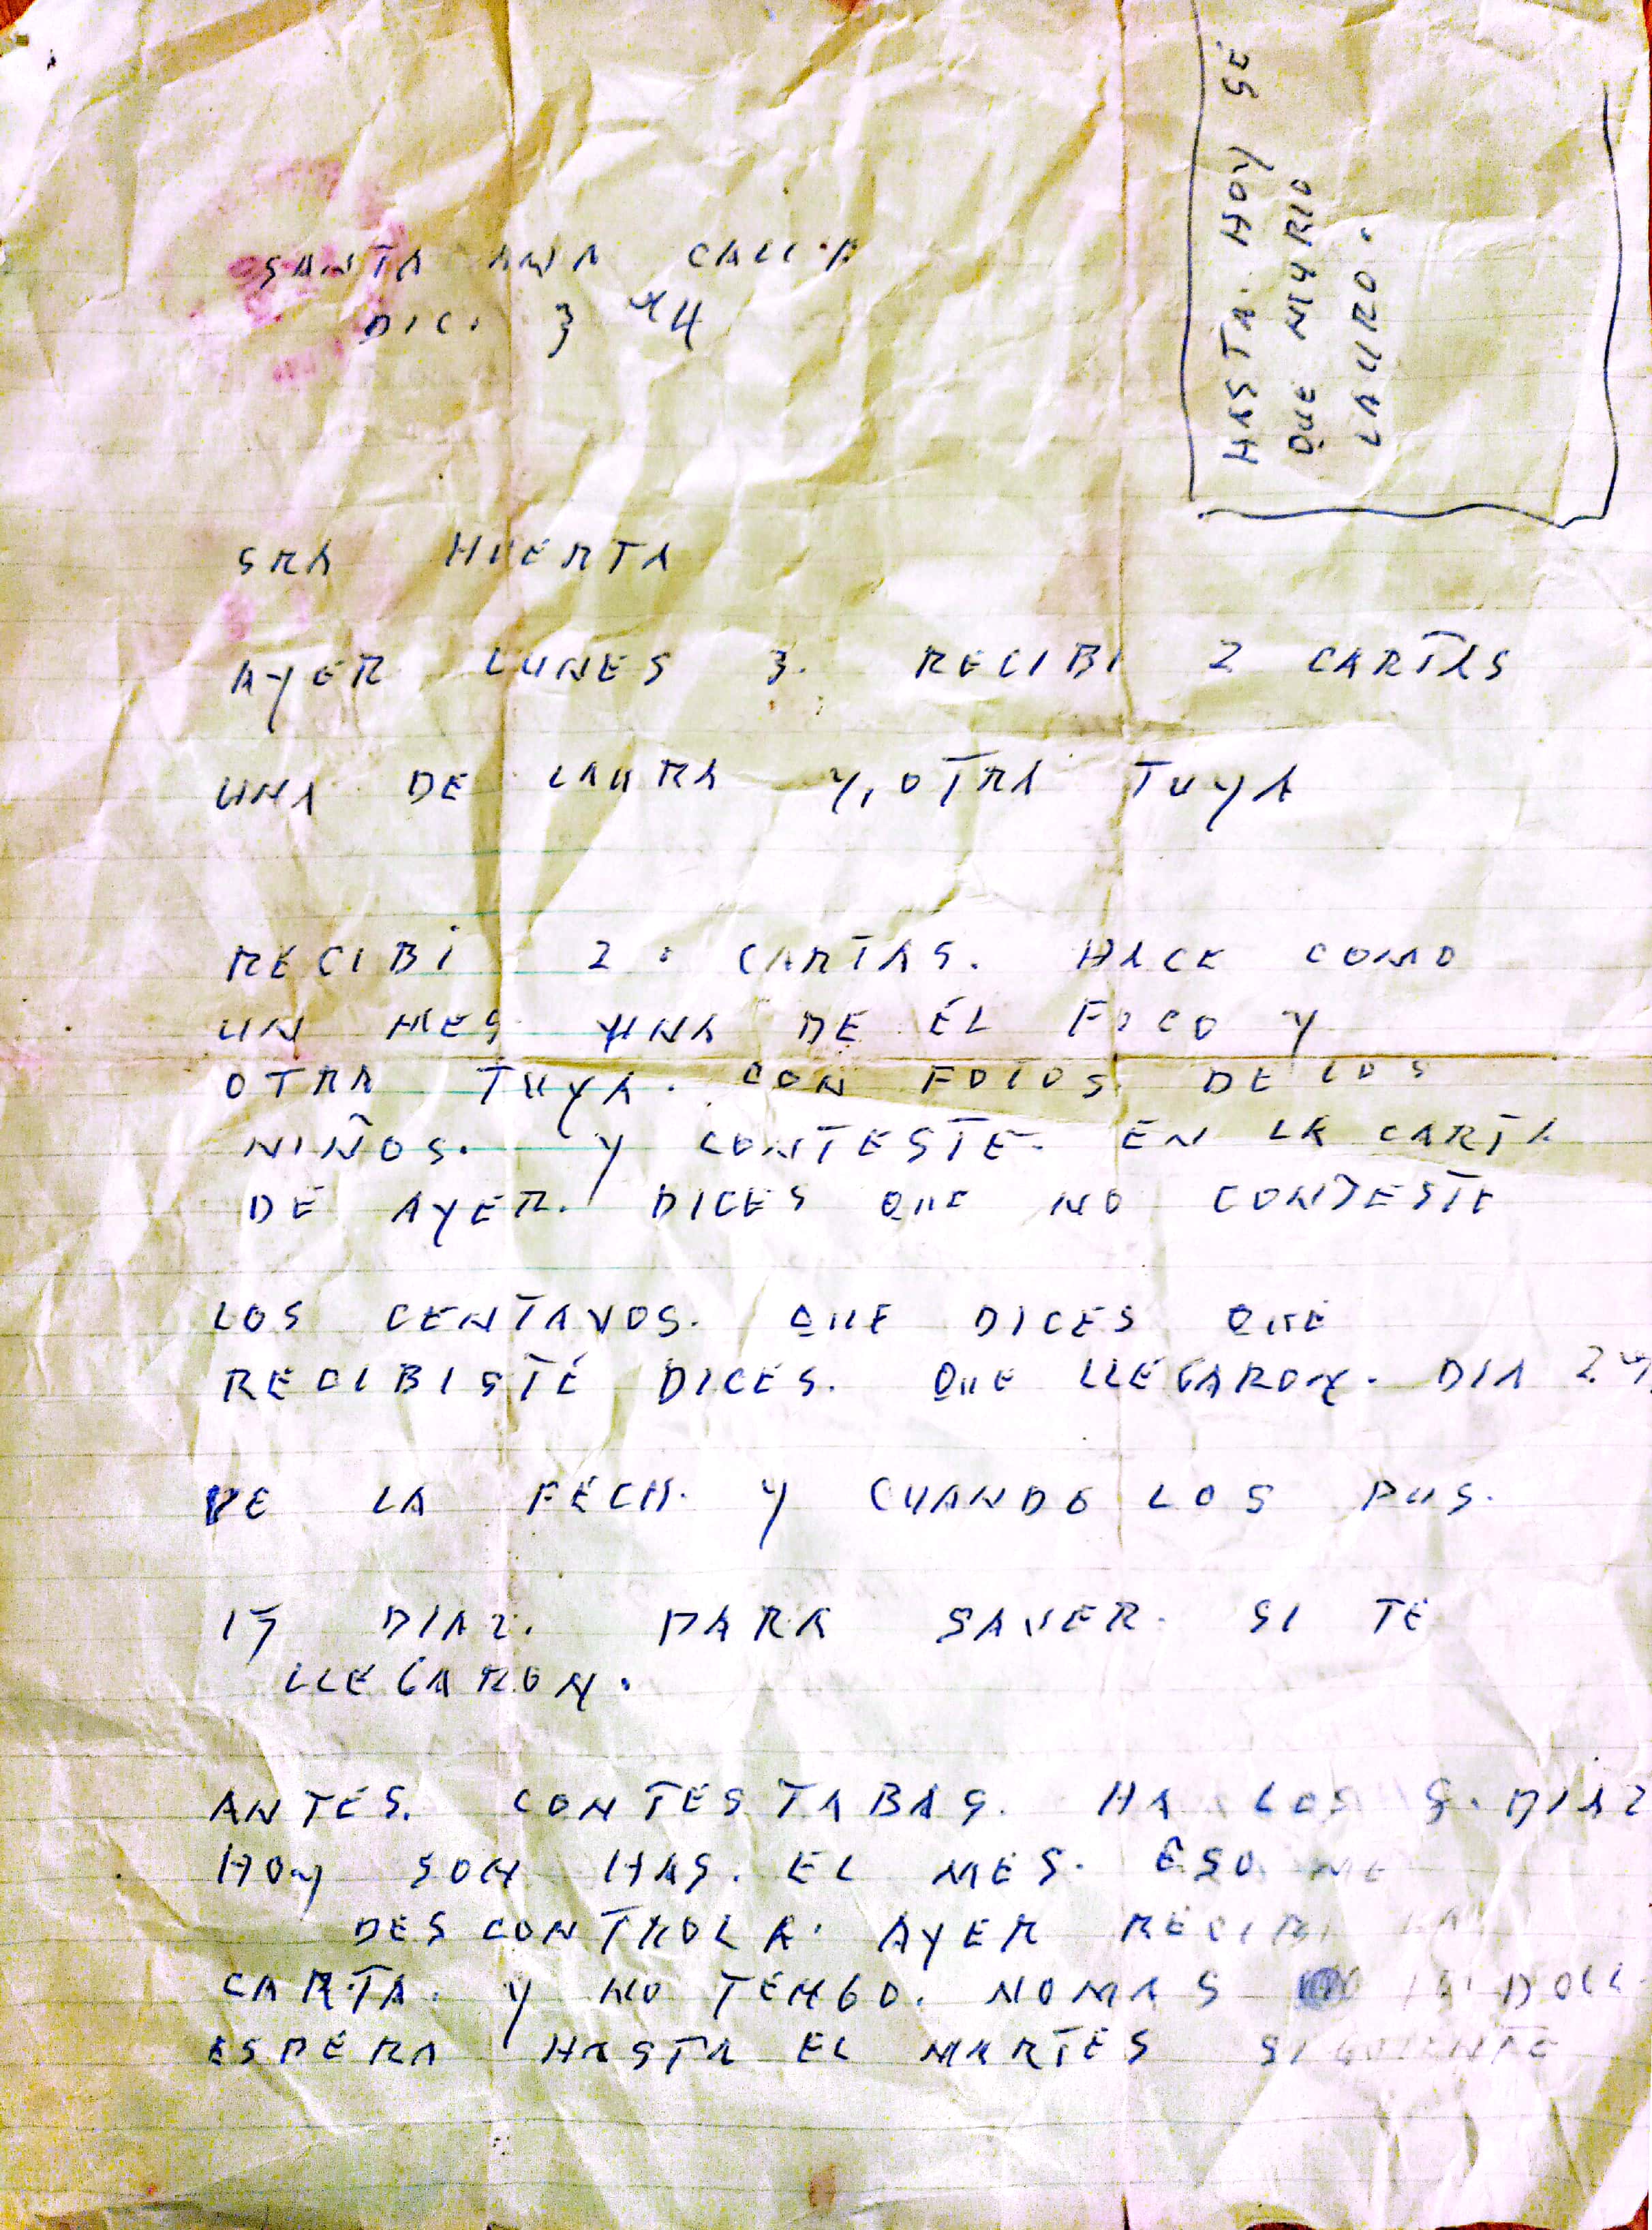 SANTA ANA CALI.A
DIC. 3 84
HASTA. HOY SÉ
QUE MURIO
LAURO.
SRA HUERTA
AYER LUNES 3. RECIBI 2 CARTAS
UNA DE LAURA Y, OTRA TUYA
RECIBI 2. CARTAS. HACE COMO
UN MES UNA DE ÉL FOCO Y
OTRA TUYA. CON FOTOS DE LOS
NIÑOS. Y CONTESTE. EN LA CARTA
DE AYER. DICES QUE NO CONTESTE
LOS CENTAVOS. QUE DICES QUE
RECIBISTE DICES. QUE LLEGARON. DIA 24
DE LA FECH. Y CUANDO LOS PUS.
15 DIAZ. PARA SAVER. SI TE
LLEGARON.
ANTES. CONTESTABAS. HA LOS 8. DIAZ
HOY SON HAS. EL MES. ESO ME
DESCONTROLA. AYER RECIBI LA
CARTA. Y NO TENGO. NOMAS DOLL
ESPERA HASTA EL MARTES SIGUIENTE